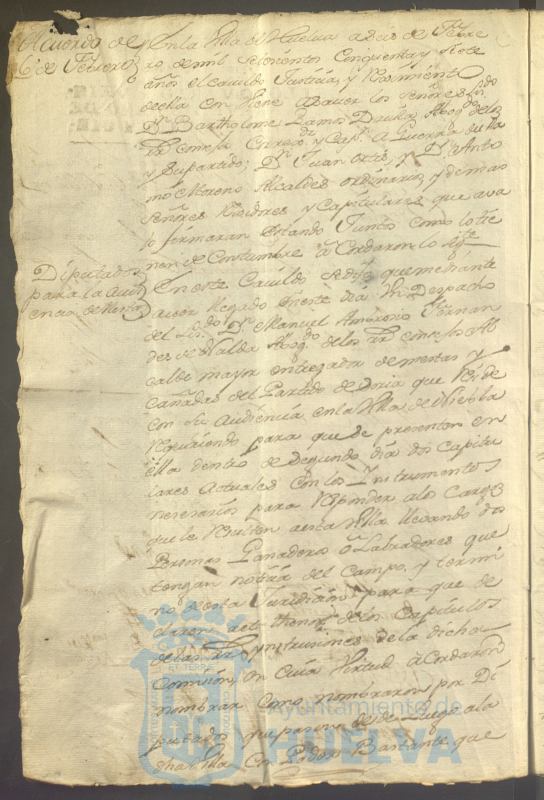 Acuerdo de
6 de Febrero
En la Villa de Huelva a Seis de Febre
ro de mil Setecientos Cinquenta y Siete
años el cavildo Justicia y Reximiento
de ella con viene a saver los señores Lizdo
Dn Bartholome Ramos Davila Abogdo de los
Rs Consejos Corregor y Capn a Guerra de ella
y su partido; Dn Juan Ortiz, y Dn Anto
nio Moreno Alcaldes ordinarios, y demas
señores Rexidores y Capitulares que ava
jo firmaran estando Juntos como lo tie
nen de Costumbre acordaron lo sigte
Diputados
para la Audi
encia de
En este Cavildo se dijo que mediante
a aver llegado en este dia Un Despacho
del Lizdo Dn Manuel Ambrosio Fernan
des de Valda Abogdo de los Rs Consejos Al
calde mayor entregador de mestas y
Cañadas del Partido de Soria que Reside
con su Audiencia en la Villa de Niebla
Requiriendo para que se presenten en
ella dentro de segundo dia dos Capitu
lares actuales con los Instrumentos
nesesarios para Responder a los Cargos
que le Resulten a esta Villa llevando dos
Personas Ganaderos o Labradores que
tengan notisia del Campo, y termi
no de esta Jurisdision para que de
claren a el thenor de los Capitulos
de las e ynstrusiones de la dicha
Comision, en cuia Virtud acordaron
nombrar como nombraron por Di
putados que pasen desde Luego a la
dha Villa con Poder Bastante que
Ayuntamiento de
HUELVA